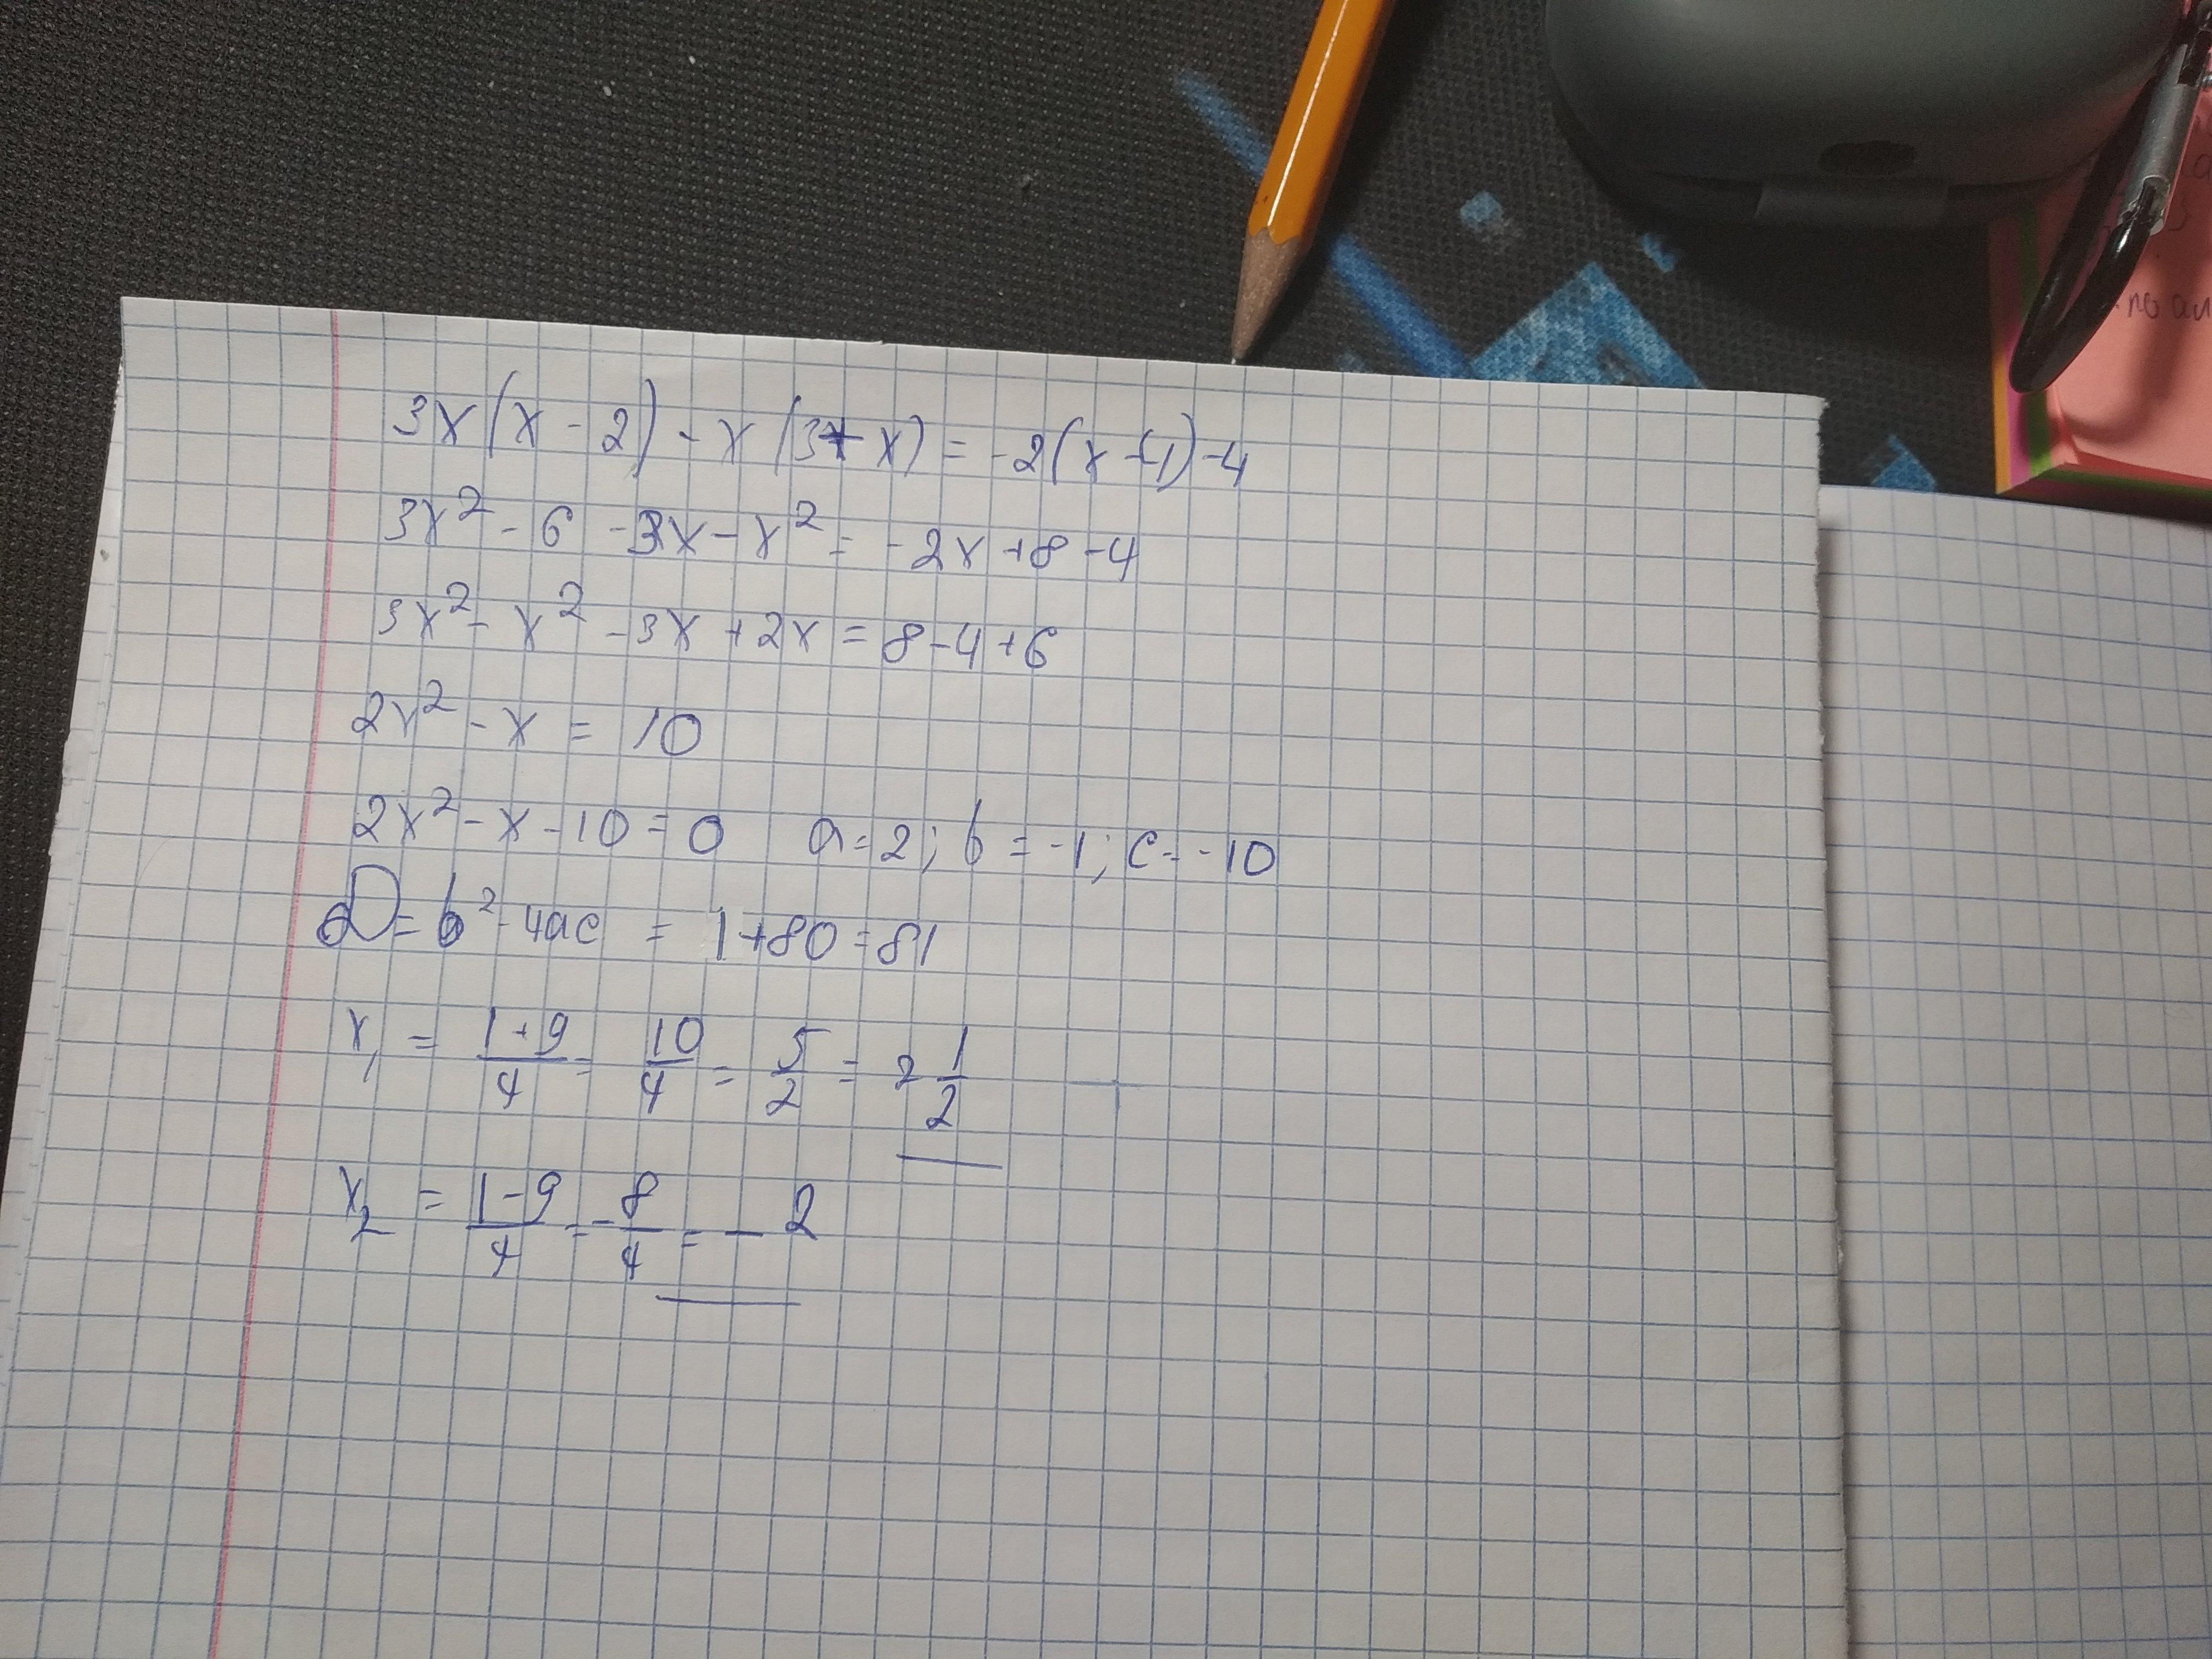 3x(x-2)-x(3+x)=-2(x-4)-4
3x²-6-3x-x²=-2x+8-4
3x²-x²-3x+2x=8-4+6
2x²-x=10
2x²-x-10=0 a=2; b=-1; c=-10
D=b²-4ac=1+80=81
x₁=\frac{1+9}{4}=\frac{10}{4}=\frac{5}{2}=2\frac{1}{2}
x₂=\frac{1-9}{4}=-\frac{8}{4}=-2